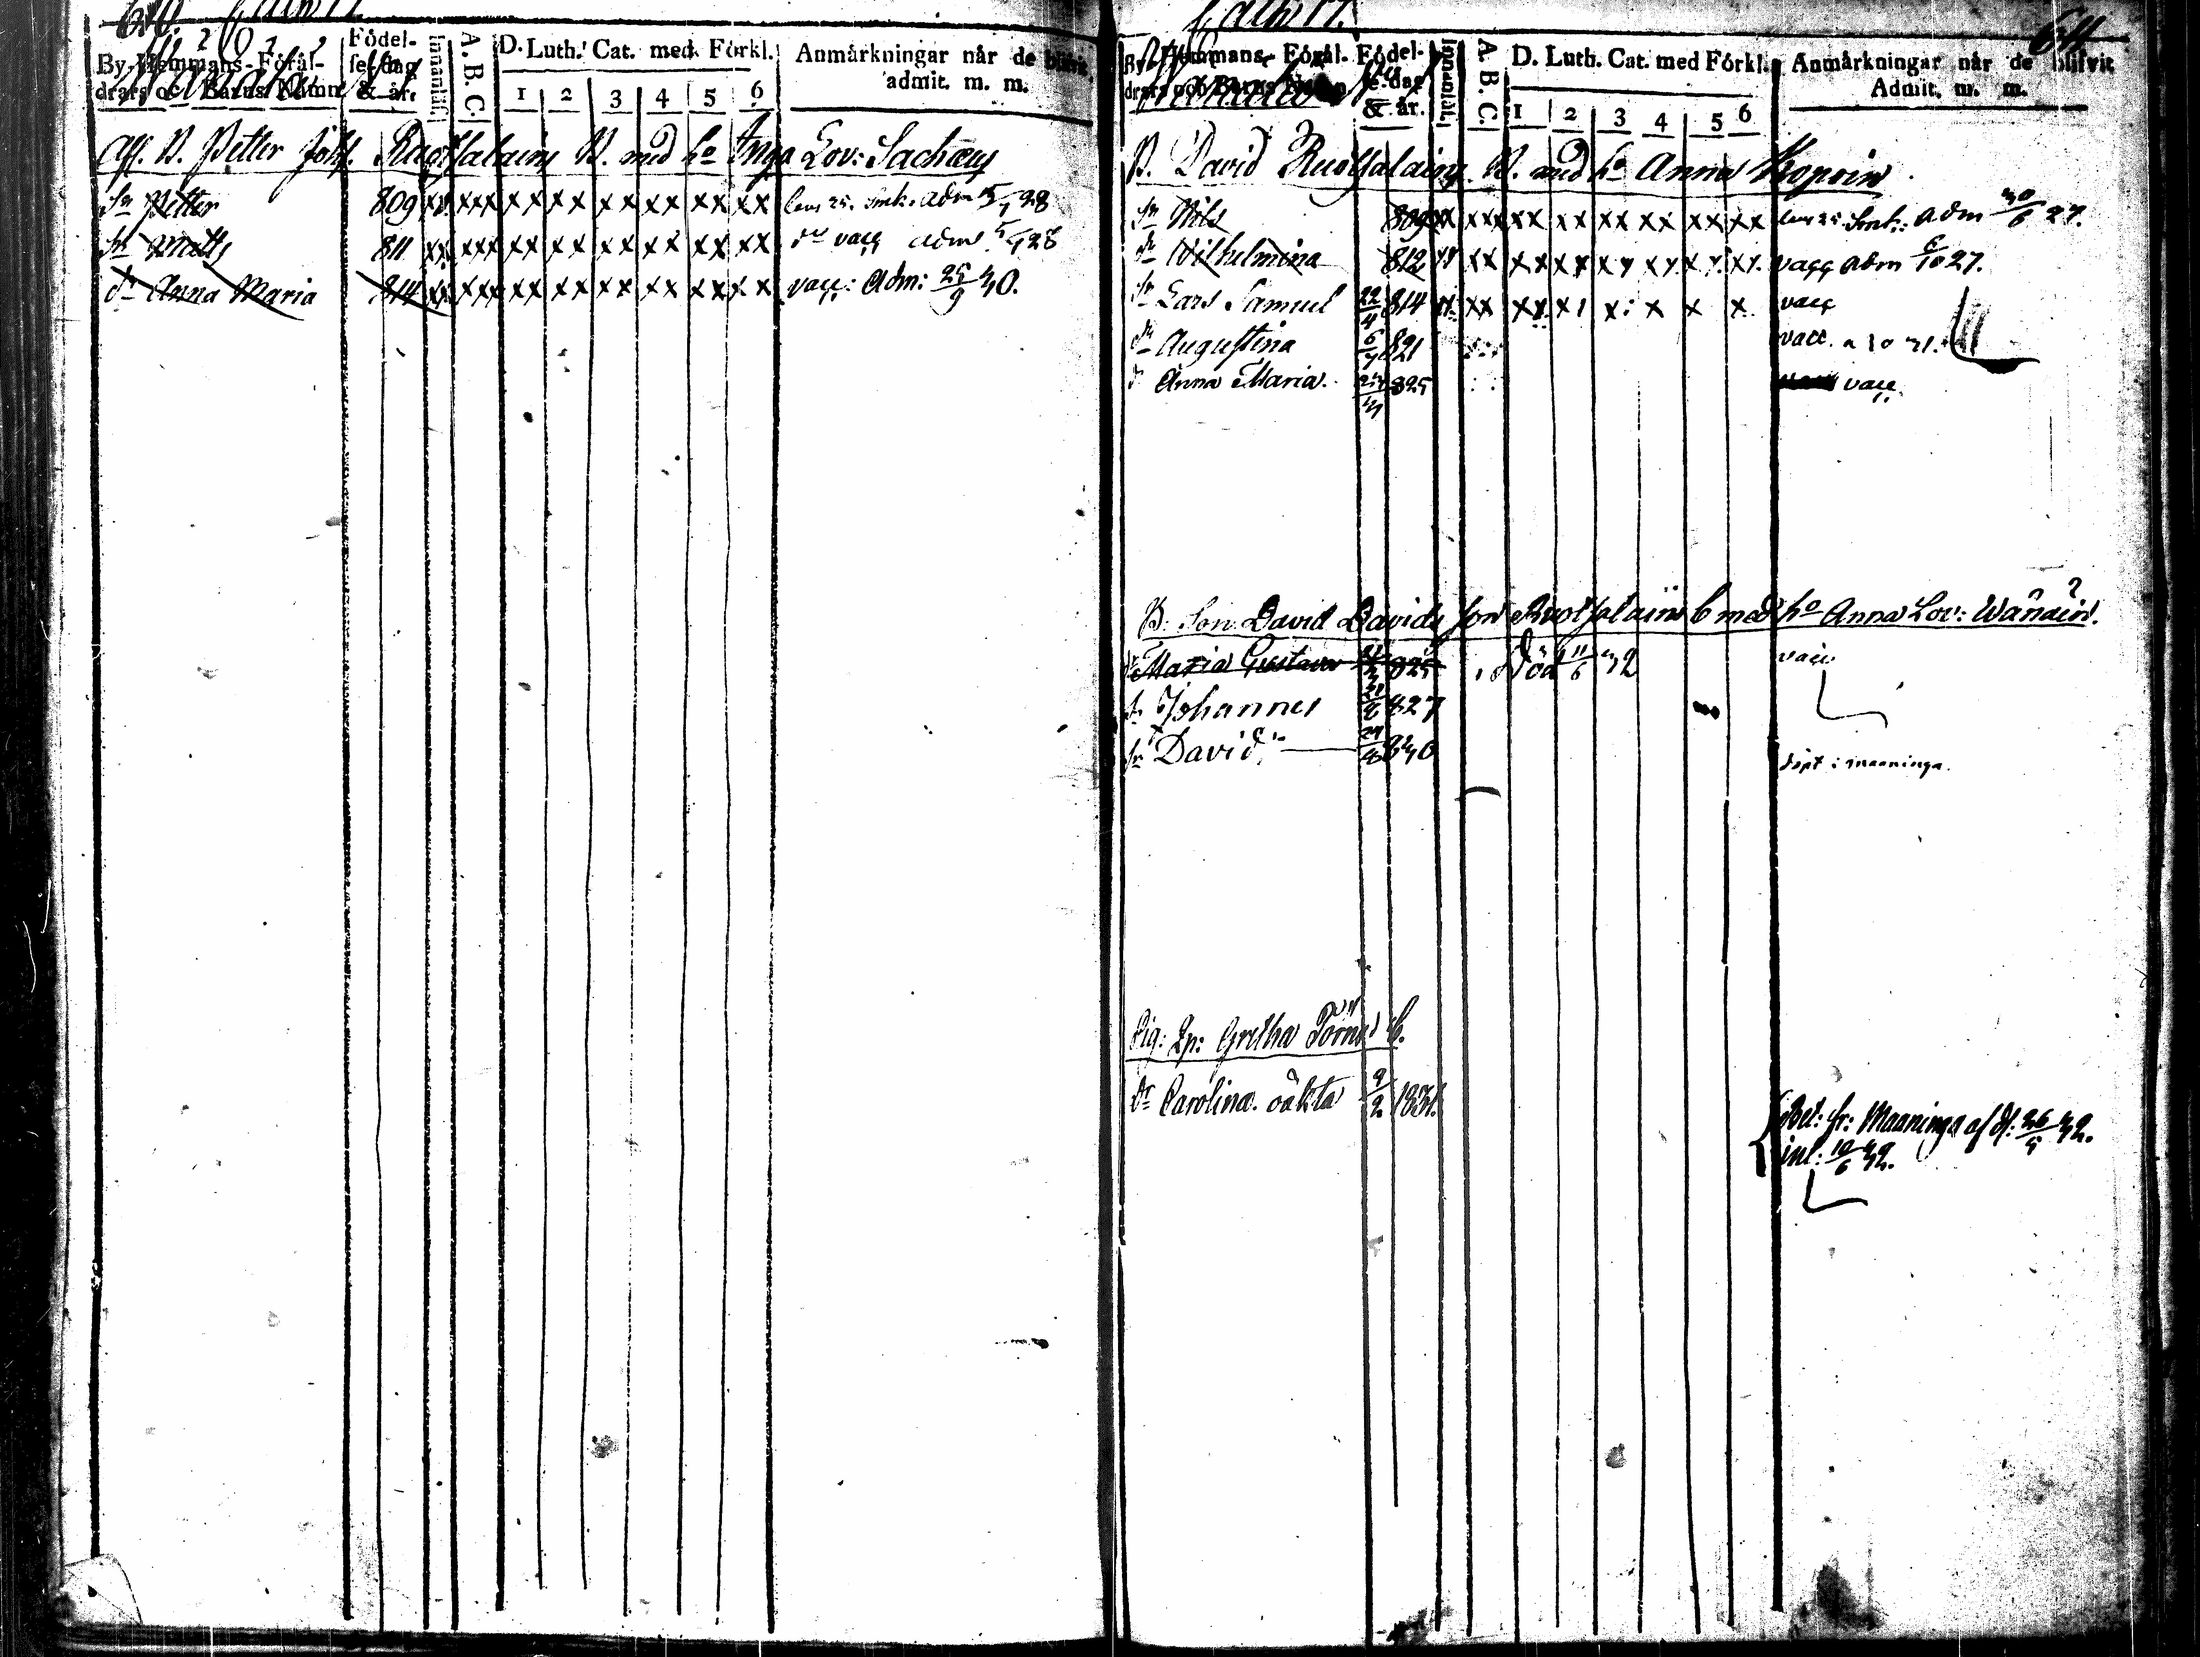 640.
By, Hemmans- Föräl-
drars och Barns Namn
Födel-
se-dag
& år.
Innanläs.
A. B. C.
D. Luth. Cat. med Förkl.
1 2 3 4 5 6
Anmärkningar når de blifvit
admit. m. m.
Afl. B. Petter Joh. Ruotsalains B. med ho Inga Lov: Sachæus
Sn Petter 809 xx xxx xx xx xx xx xx xx adm 5/7 28
Sn Matts 811 xx xxx xx xx xx xx xx xx vacc adm 5/7 28
dr Anna Maria 814 xx xxx xx xx xx xx xx xx vacc: Adm: 25/9 30.
641.
By, Hemmans- Föräl-
drars och Barns Namn
Födel-
se-dag
& år.
Innanläs.
A. B. C.
D. Luth. Cat. med Förkl.
1 2 3 4 5 6
Anmärkningar når de blifvit
Admit. m. m.
B. David Ruotsalains B. med ho Anna Kopoin
Sn Nils 809 xx xxx xx xx xx xx xx xx adm 30/6 27.
dr Wilhelmina 812 xx xx xx xx xx xx xx xx vacc adm 6/10 27.
Sn Lars Samuel 22/4 814 vacc
dr Augustina 6/7 821 vacc.
dr Anna Maria. 825 vacc.
B: Son David Davids son Ruotsalains b med ho Anna Lov: Wänäin.
dr Maria Gustava 825 Död 11/6 32 vacc
Sn Johannes 827
Sn David 830 döpt i maaninga.
Pig: Lp: Gretha Törns b.
dr Carolina oäkta 9/2 1831.
Bet: fr: Maaninga af d: 26/5 32.
inl: 10/6 32.